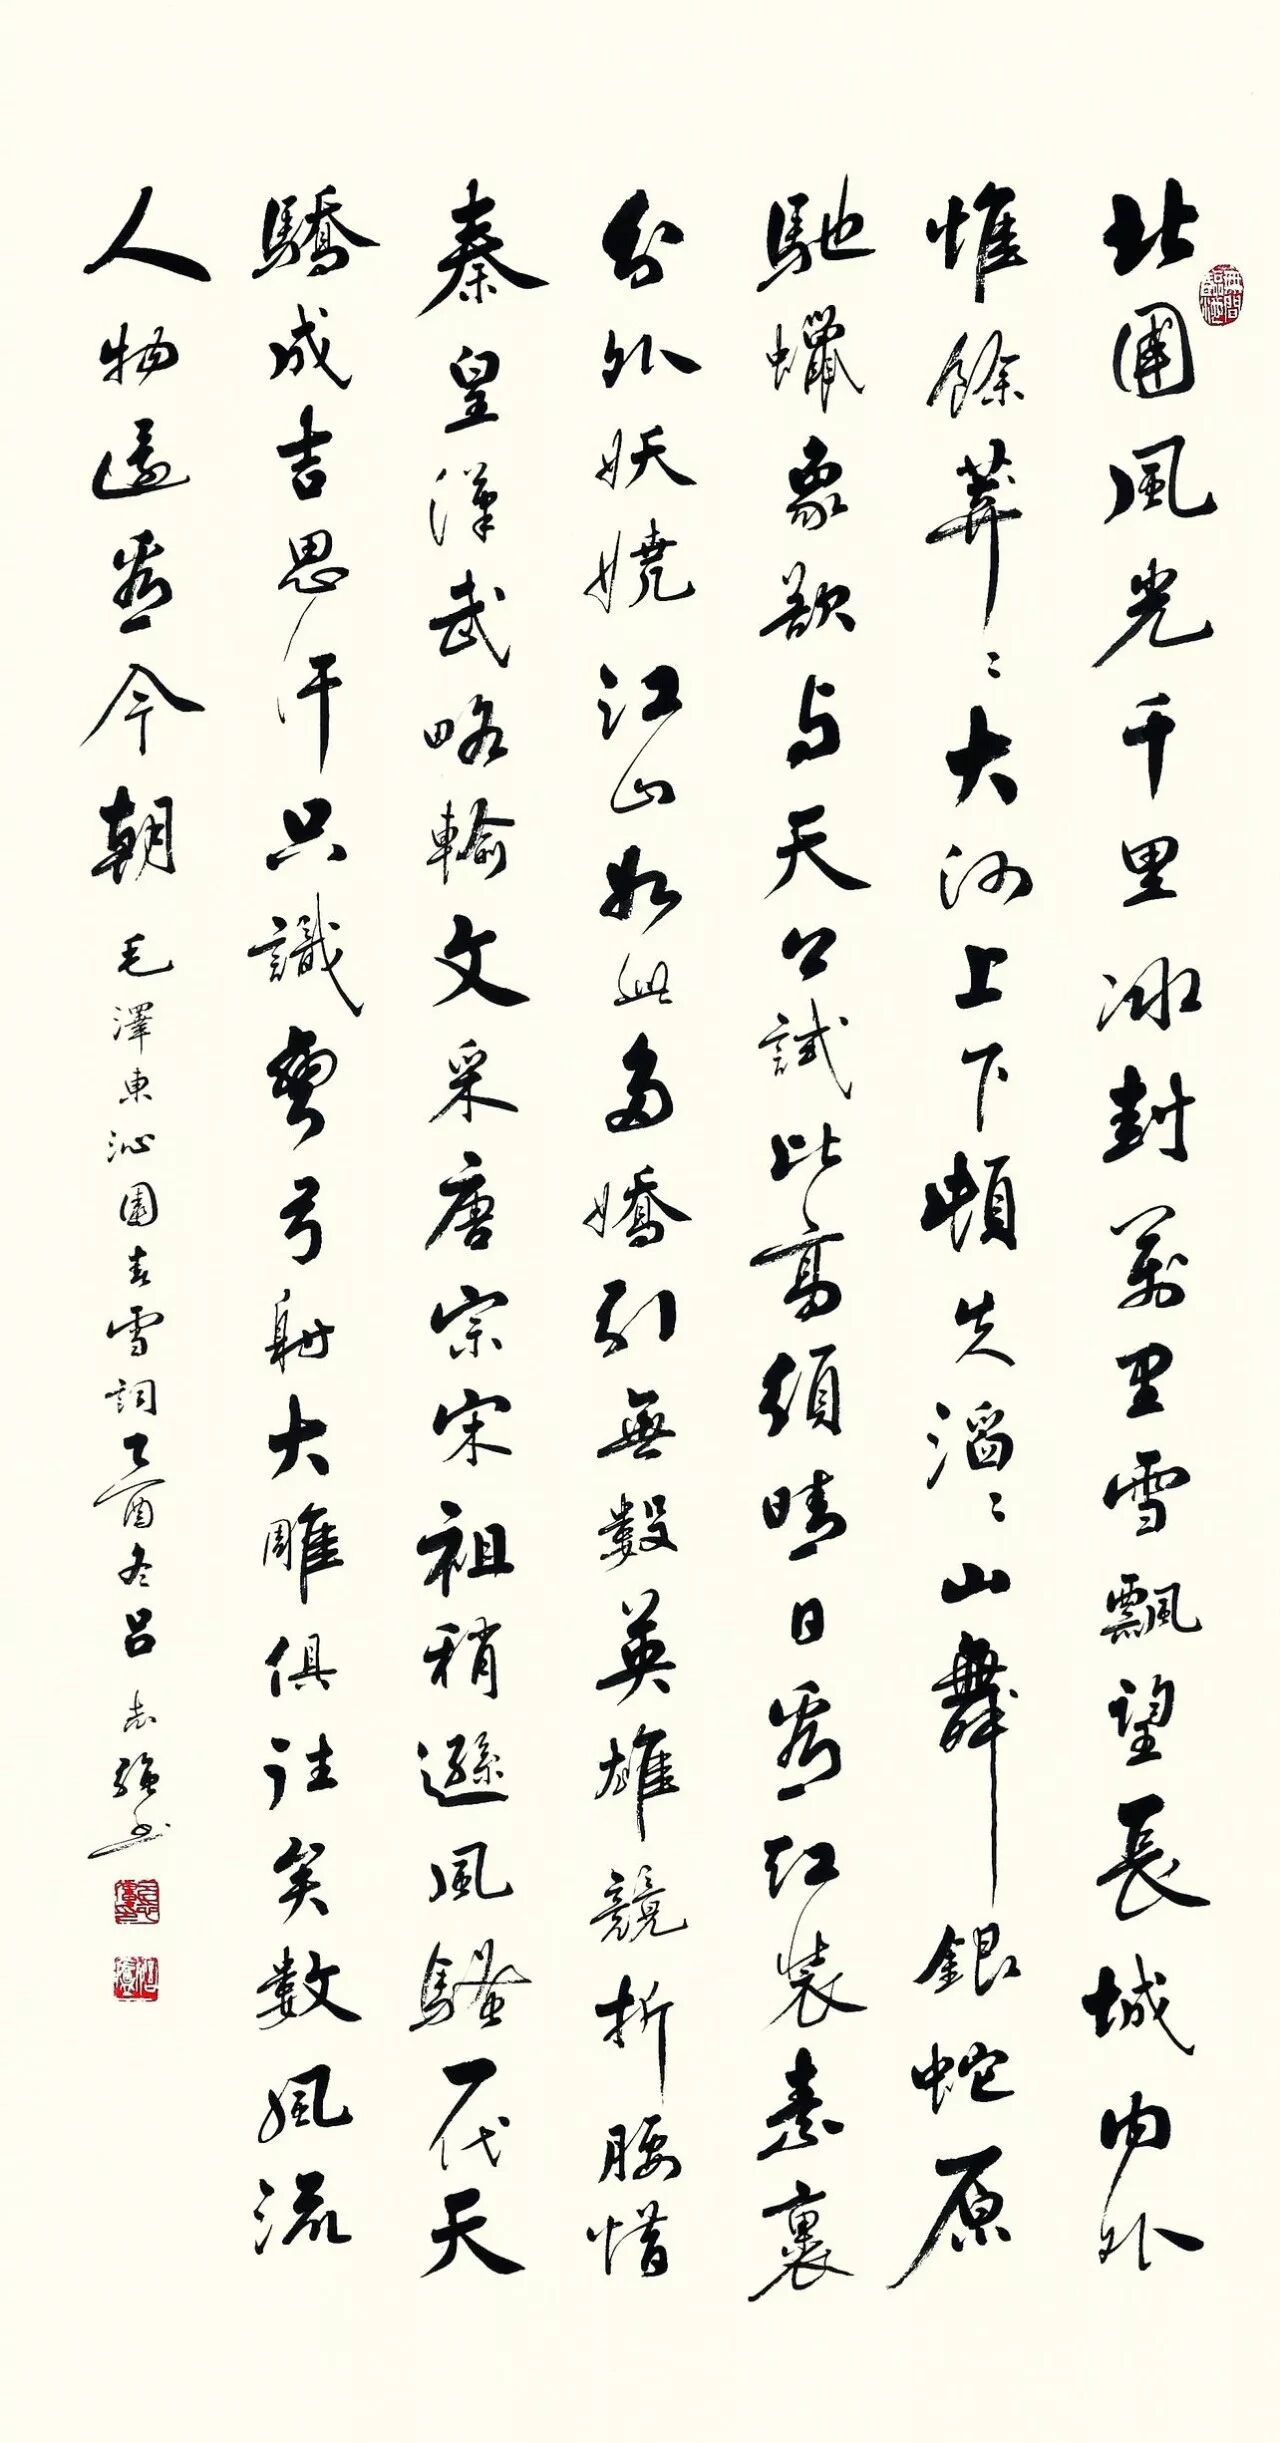 北國風光千里冰封萬里雪飄望長城內外
惟餘莽〻大河上下頓失滔〻山舞銀蛇原
馳蠟象欲与天公試比高須晴日看紅裝素裹
分外妖嬈江山如此多嬌引無數英雄競折腰惜
秦皇漢武略輸文采唐宗宋祖稍遜風騷一代天
驕成吉思汗只識彎弓射大雕俱往矣數風流
人物還看今朝 毛澤東沁園春雪詞乙酉冬呂志強书